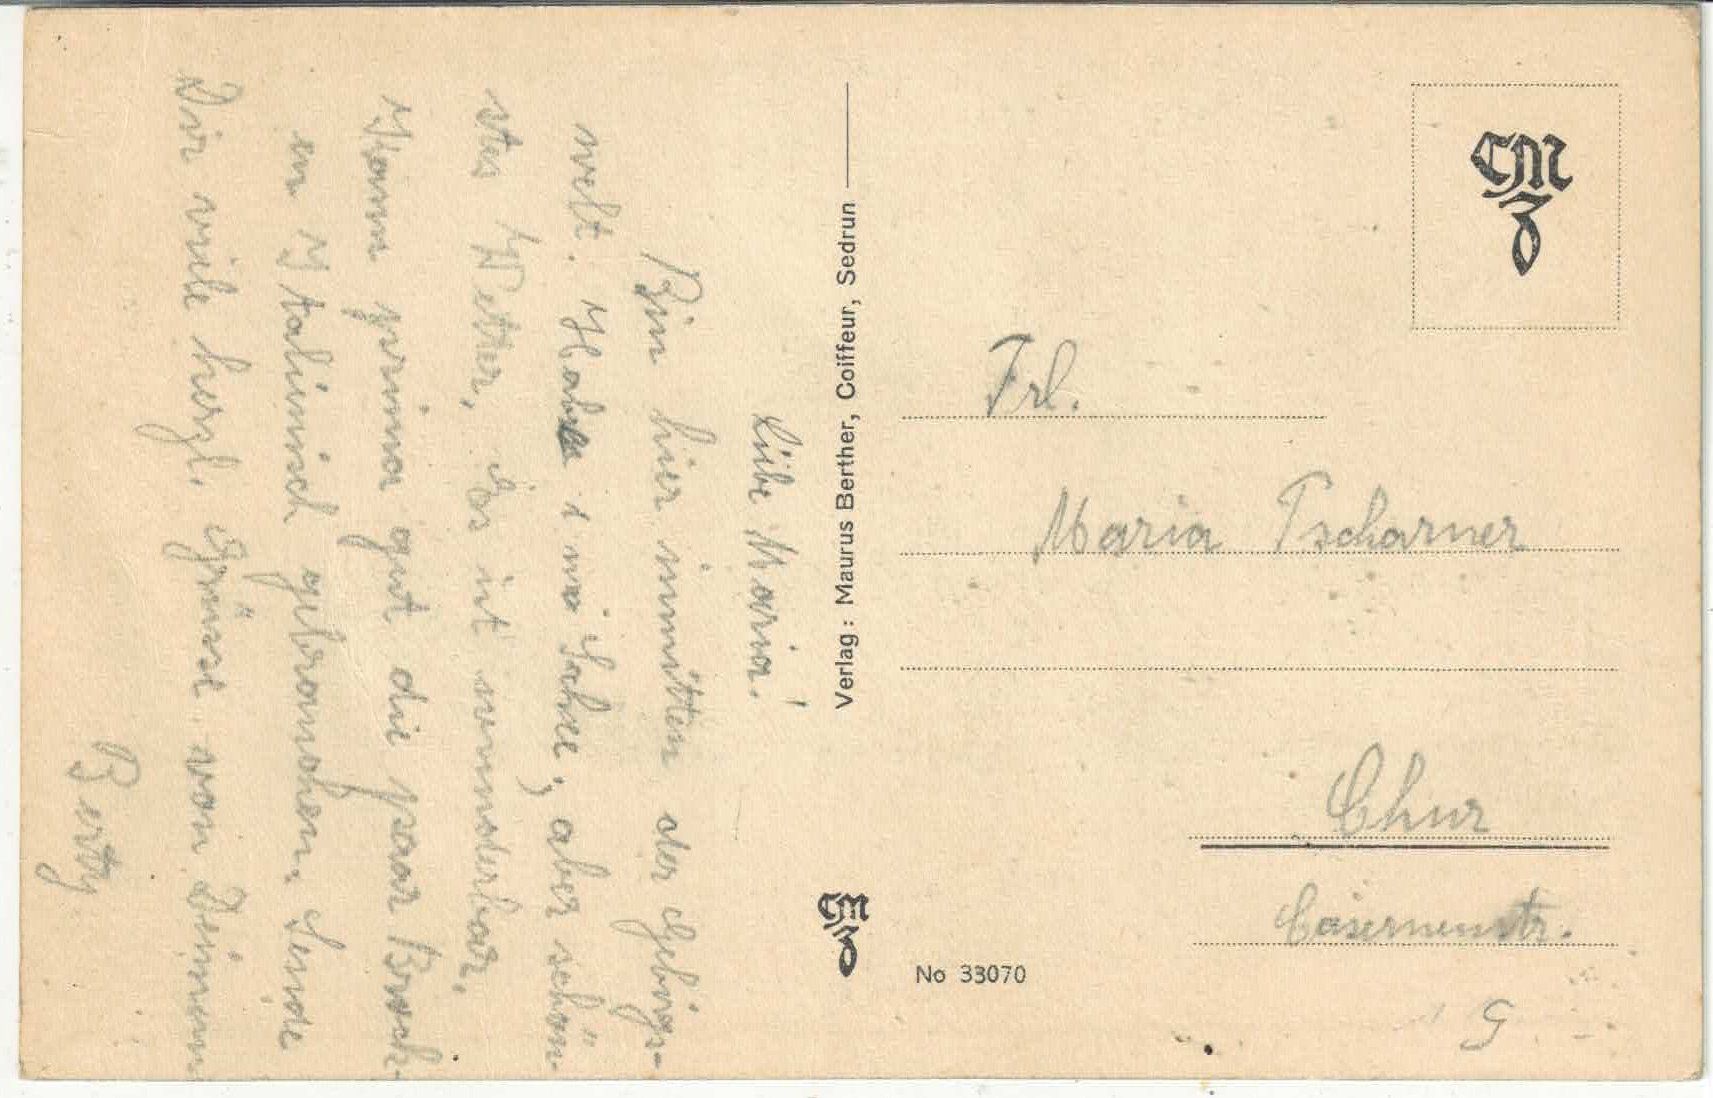 Liebe Maria!
Bin hier inmitten der Gebirgs-
welt. Habe 1 m Schnee, aber schön-
stes Wetter. Es ist wunderbar.
Kann prima gut die paar Brock-
en Italienisch gebrauchen. Sende
Dir viele herzl. Grüsse von Deinem
Berty
Verlag: Maurus Berther, Coiffeur, Sedrun
Frl.
Maria Tscharner
Chur
Casernenstr.
No 33070
G